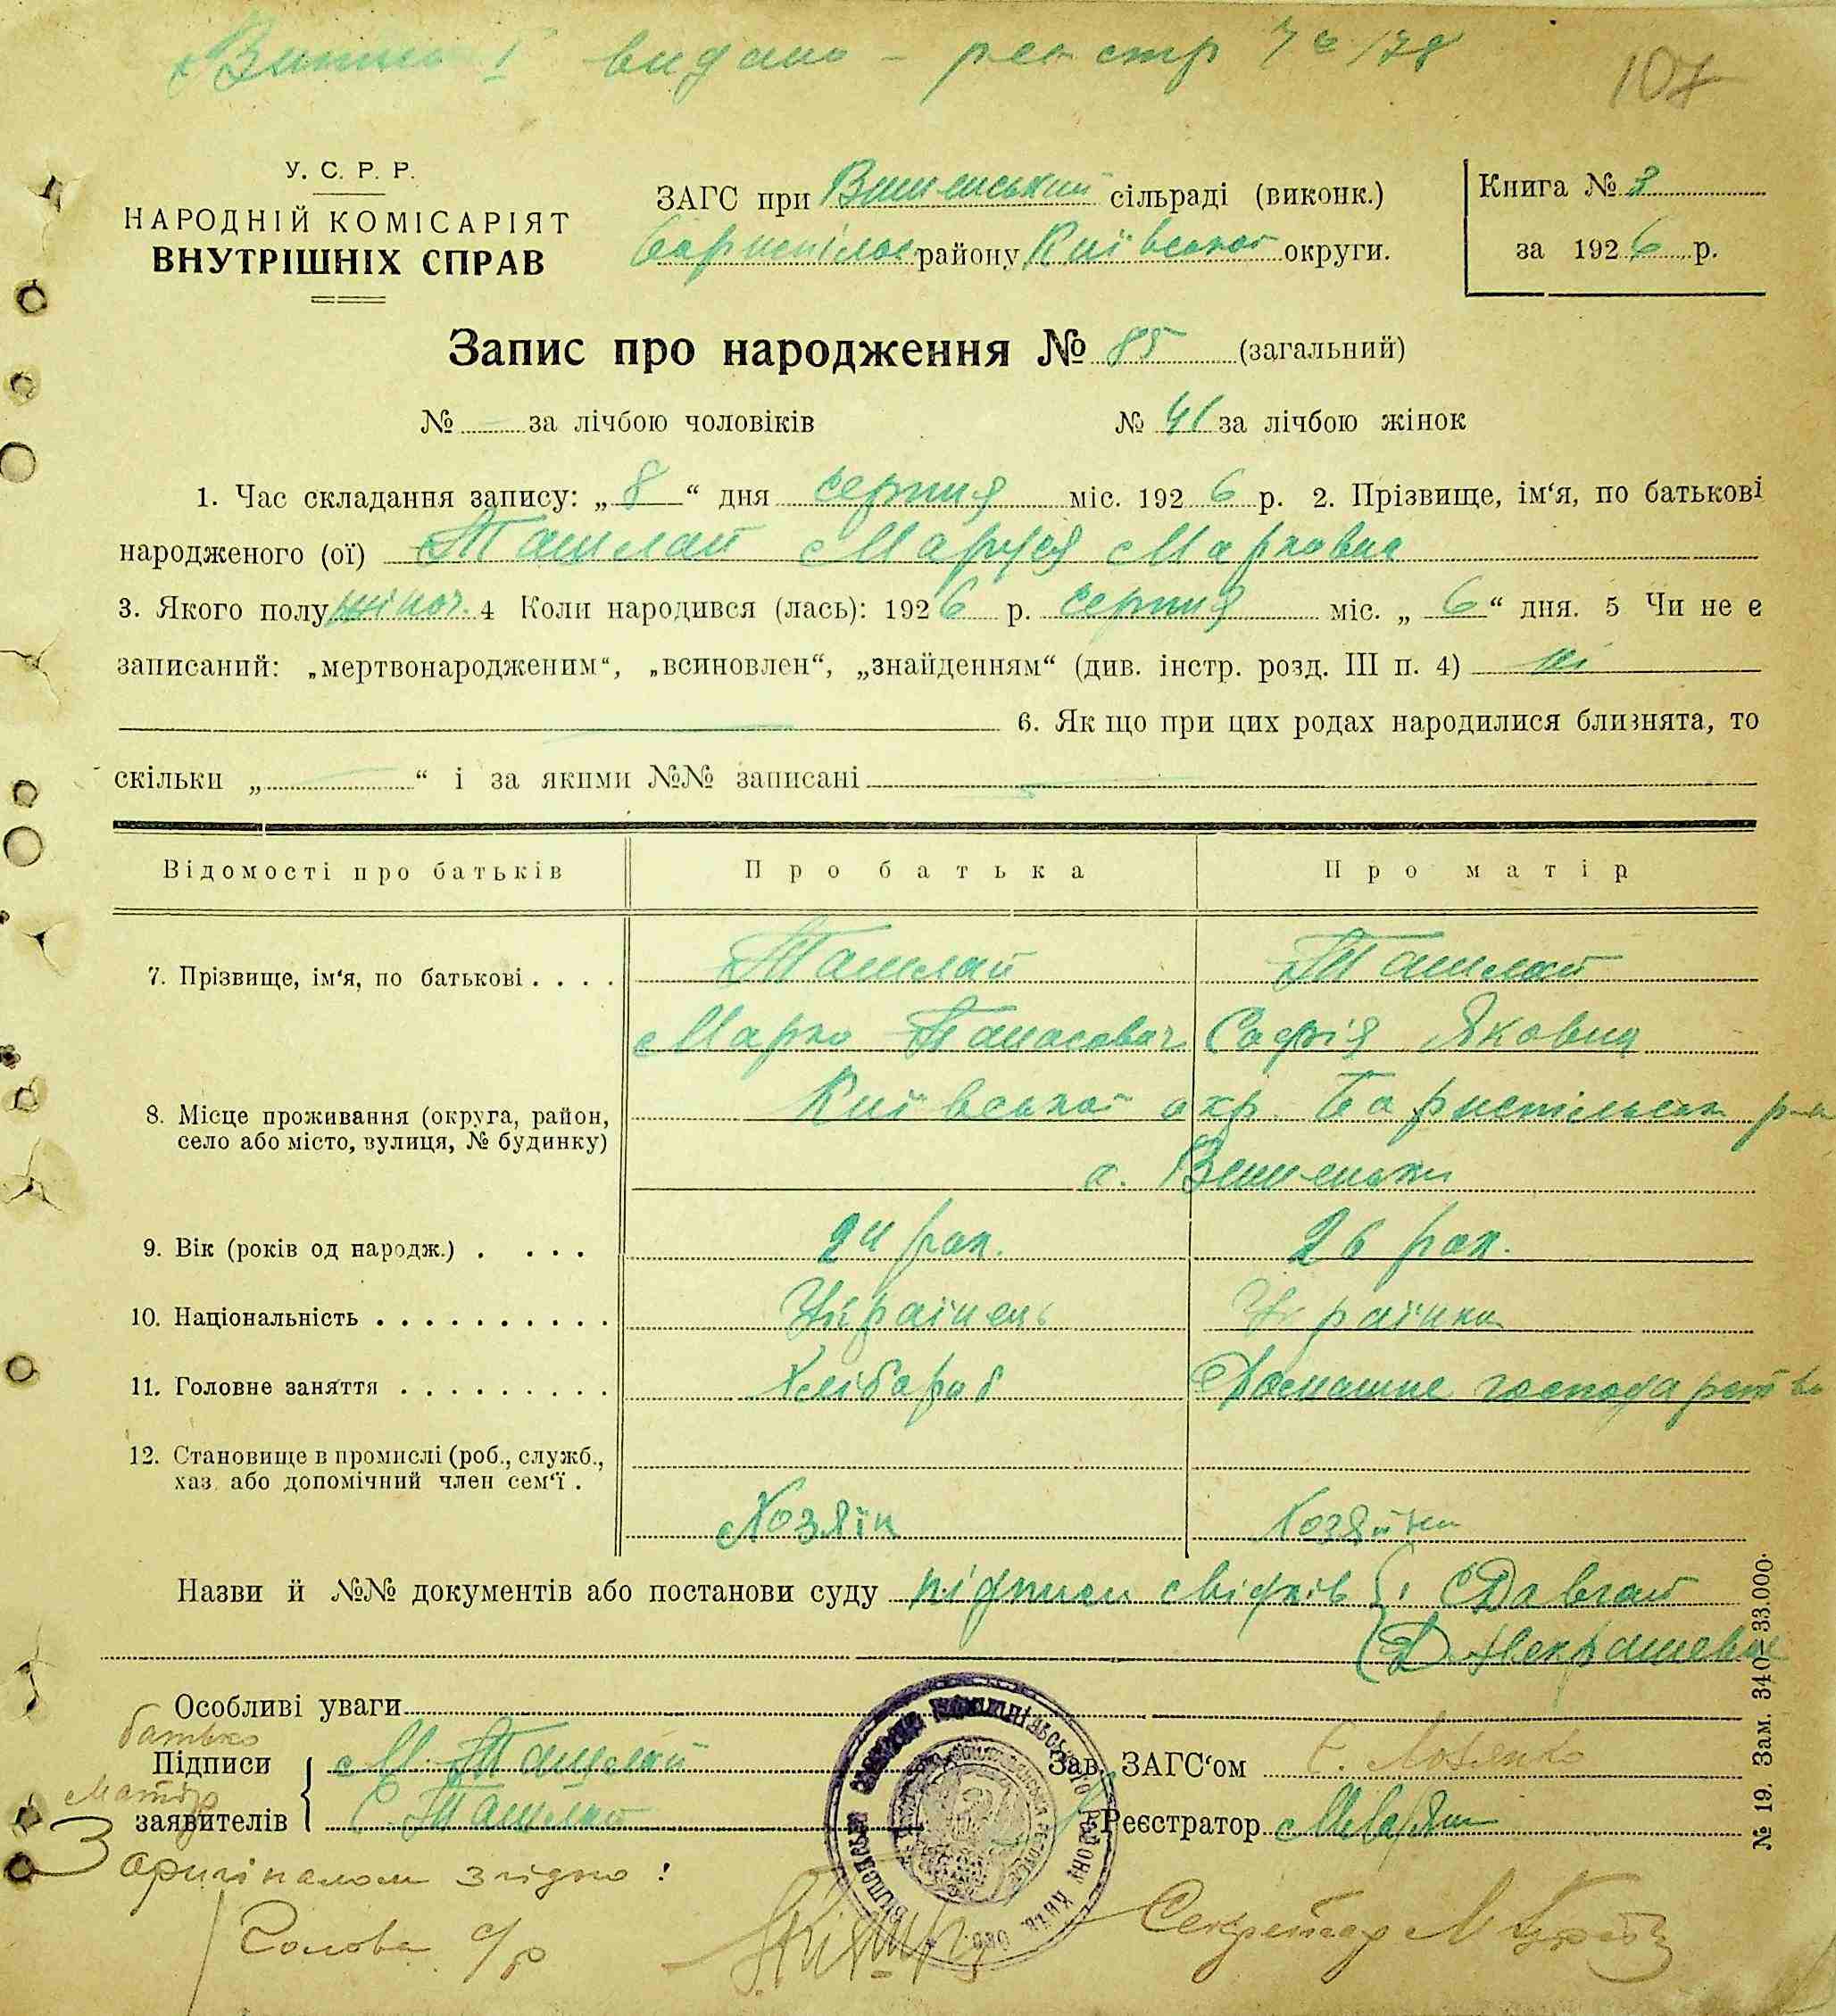 видано - реєстр
107
У. С. Р. Р.
НАРОДНІЙ КОМІСАРІЯТ
ВНУТРІШНІХ СПРАВ
ЗАГС при сільраді (виконк.)
району Київської округи.
Книга №
за 1926 р.
Запис про народження № 85 (загальний)
№ - за лічбою чоловіків № 41 за лічбою жінок
1. Час складання запису: „ 8 “ дня серпня міс. 1926 р. 2. Прізвище, ім‘я, по батькові
народженого (ої) Ташлай Маруся Марковна
3. Якого полу жіноч. 4 Коли народився (лась): 1926 р. серпня міс. „ 6 “ дня. 5 Чи не є
записаний: „мертвонародженим“, „всиновлен“, „знайденням“ (див. інстр. розд. III п. 4) ні
6. Як що при цих родах народилися близнята, то
скільки „ “ і за якими №№ записані
Відомості про батьків Про батька Про матір
7. Прізвище, ім‘я, по батькові . . . . Ташлай Ташлай
Марко Панасович Софія Яковна
8. Місце проживання (округа, район, Київської окр. Бориспільськ р-н
село або місто, вулиця, № будинку)
с. Вишеньки
9. Вік (років од народж.) . . . . 24 рок. 26 рок.
10. Національність . . . . . . . . . . Українець Українка
11. Головне заняття . . . . . . . . . Хлібороб Домашнє господарство
12. Становище в промислі (роб., служб.,
хаз. або допомічний член сем‘ї .
Хозяїн Хозяйка
Назви й №№ документів або постанови суду підписи свідків Довгай
Д. Некрашевич
Особливі уваги
батько
Підписи М. Ташлай Зав. ЗАГС‘ом
матір
заявителів С. Ташлай Реєстратор
З оригіналом згідно!
Голова с/р Секретар М
№ 19. Зам. 340—33.000.